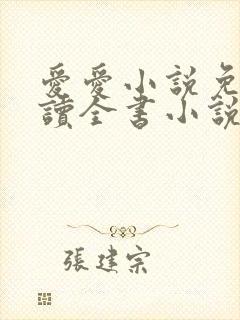 愛愛小說免
讀全書小說
張建宗